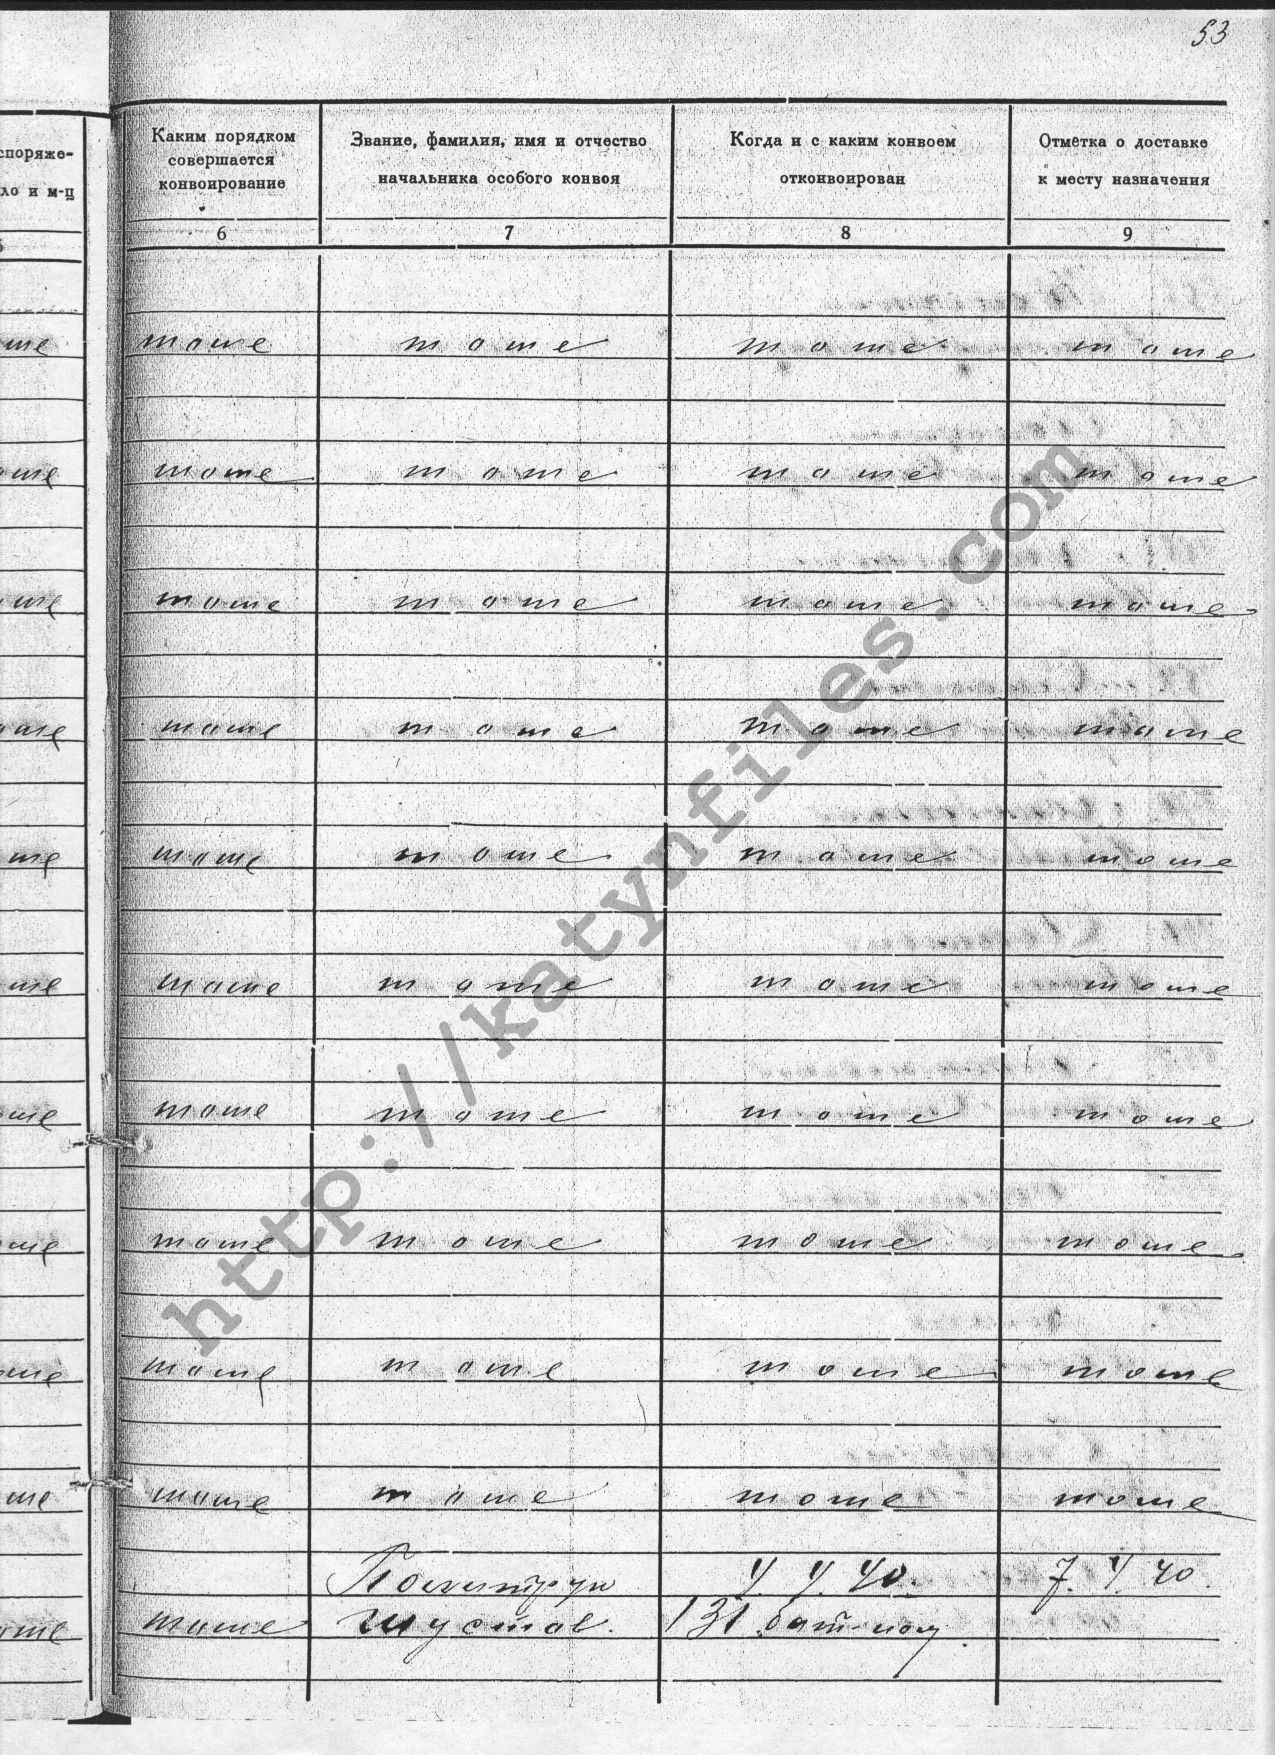 53
споряже- Каким порядком Звание, фамилия, имя и отчество Когда и с каким конвоем Отметка о доставке
ло и м-ц совершается начальника особого конвоя отконвоирован к месту назначения
конвоирование
6 7 8 9
тоже тоже тоже тоже
тоже тоже тоже тоже
тоже тоже тоже тоже
тоже тоже тоже тоже
тоже тоже тоже тоже
тоже тоже тоже тоже
тоже тоже тоже тоже
тоже тоже тоже тоже
тоже тоже тоже тоже
тоже тоже тоже тоже
Политрук 4 4 40. 7. 4. 40.
тоже Шустов. 131 бат-ном.
http://katynfiles.com